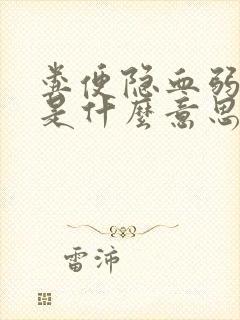 粪便隐血弱
是什麼意思
雷沛